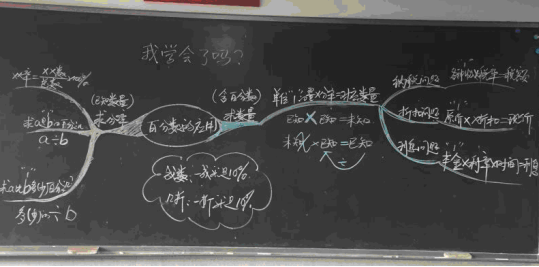 我学会了吗?
XX率=XX数/总数×100%
(已知数量)
求分率
求a是b的百分之几
a÷b
求a比b多(少)百分之几
多(少)的÷b
百分数的应用
(含百分数)
求数量
单位"1"的量×分率=对应数量
已知×已知=未知
未知×已知=已知
÷
成数:一成就是10%
几折:一折就是10%
纳税问题
折扣问题
原价×折扣=现价
利息问题
本金×利率×时间=利息